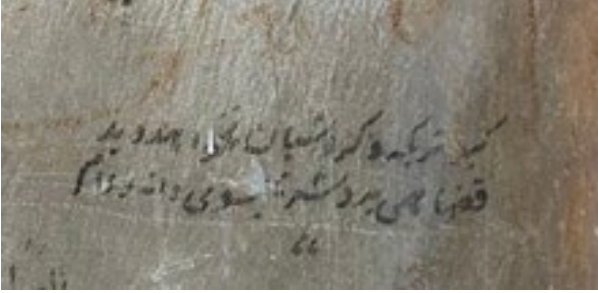 کبوتریکه دگر آشیان نخواهد دید
قضا همی بردش تا بسوی دانه و دام